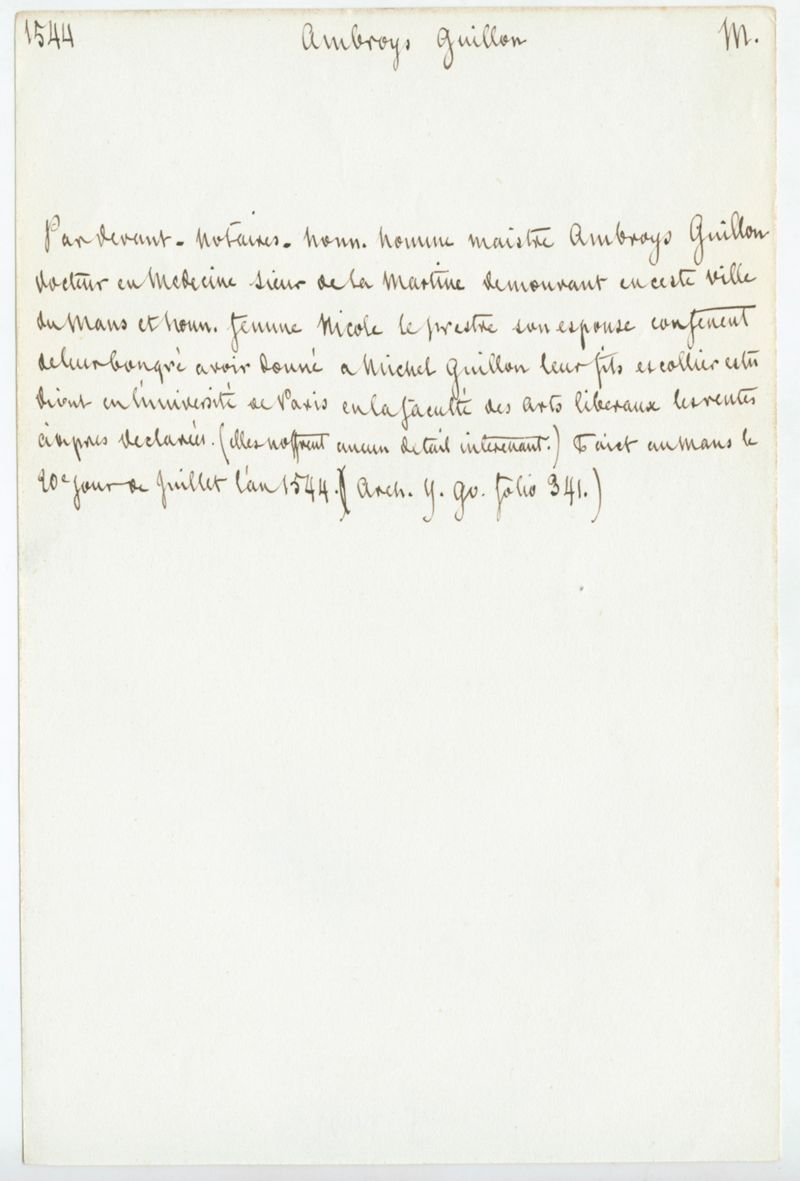 1544 Ambroys Guillon M.
Par devant - notaires - honn. homme maistre Ambroys Guillon
docteur en Medecine sieur de la Martine demourant en ceste ville
du Mans et honn. femme Nicole le prestre son espouse confessent
de leur bon gré avoir donné a Michel Guillon leur fils escollier estu
diant en l'université de Paris en la faculté des Arts liberaux les rentes
ci apres declarées. (elles n'offrent aucun detail interenant.) Faict au Mans le
20e jour de Juillet l'an 1544. (Arch. Y. 90. folio 341.)